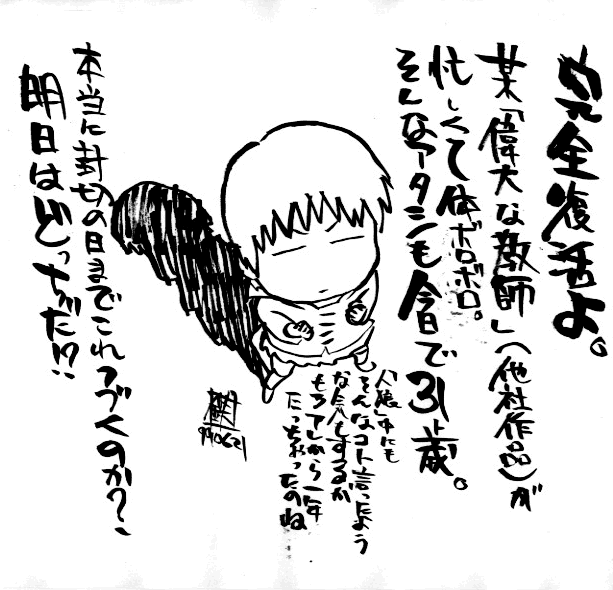 完全復活よ。
某「偉大な教師」(他社作品)が
忙しくて体ボロボロ。
そんなアタシも今日で31歳。
「人狼」中にも
そんなコト言ったよう
な気もするが
もうアレから一年
たっちゃったのね
990621
本当に封切の日までこれつづくのか?、
明日はどっちだ!?